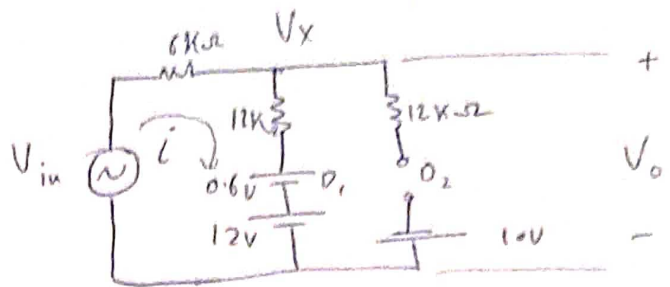 6KΩ Vx
+
12K 12KΩ
Vin i 0.6V D1 D2 Vo
12V 10V -